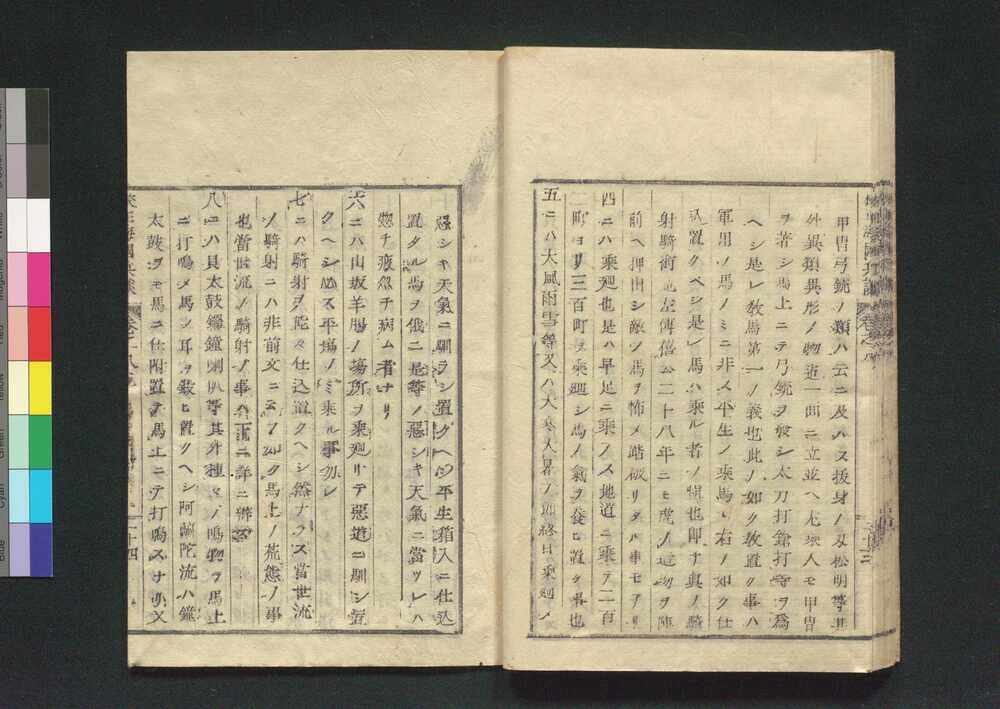 甲冑弓銃ノ類ハ云ニ及ハス抜身ノ刄松明等其
外異類異形ノ物ヲ一面ニ立並ヘ尤乗人モ甲冑
ヲ著シ馬上ニテ弓銃ヲ發シ太刀打鎗打等ヲ爲
ヘシ是レ教馬第一ノ義也此ノ如ク教置ク事ハ
軍用ノ馬ノミニ非ス平生ノ乘馬モ右ノ如ク仕
込置クベシ是レ馬ニ乘ル者ノ慎也即チ眞ノ騎
射騎術也左傳僖公二十八年ニモ虎ノ造物ヲ陣
前ヘ押出シ敵ノ馬ヲ怖メ踏破リタル事モアリ
四ニハ乘廻也是ハ早足ニ乘ノス地道ニ乘テ二百
町ヨリ三百町モ乘廻シ馬ノ氣ヲ養ヒ置ク事也
五ニハ大風雨雪等又ハ大寒大暑ノ節終日乘廻シ
惡シキ天氣ニ馴ラシ置クヘシ平生箱入ニ仕込
置タル馬ヲ俄ニ是等ノ惡シキ天氣ニ當ツレハ
忽チ疲忽チ病ム者ナリ
六ニハ山坂羊腸ノ場所ヲ乘廻リテ惡道ニ馴シ置
クヘシ必ス平場ノミ乘ル事勿レ
七ニハ騎射ヲ能々仕込置クヘシ然ナカラ當世流
ノ騎射ニハ非前文ニ云フ如ク馬上ノ荒態ノ事
也當世流ノ騎射ノ事ハ下ニ詳ニ辨ス
八ニハ貝太鼓鑼鐘喇叭等其外種々ノ鳴物ヲ馬上
ニ打鳴メ馬ノ耳ヲ敎ヒ置クヘシ阿蘭陀流ハ鐘
太鼓ヲモ馬ニ仕附置テ馬上ニテ打鳴スナリ又